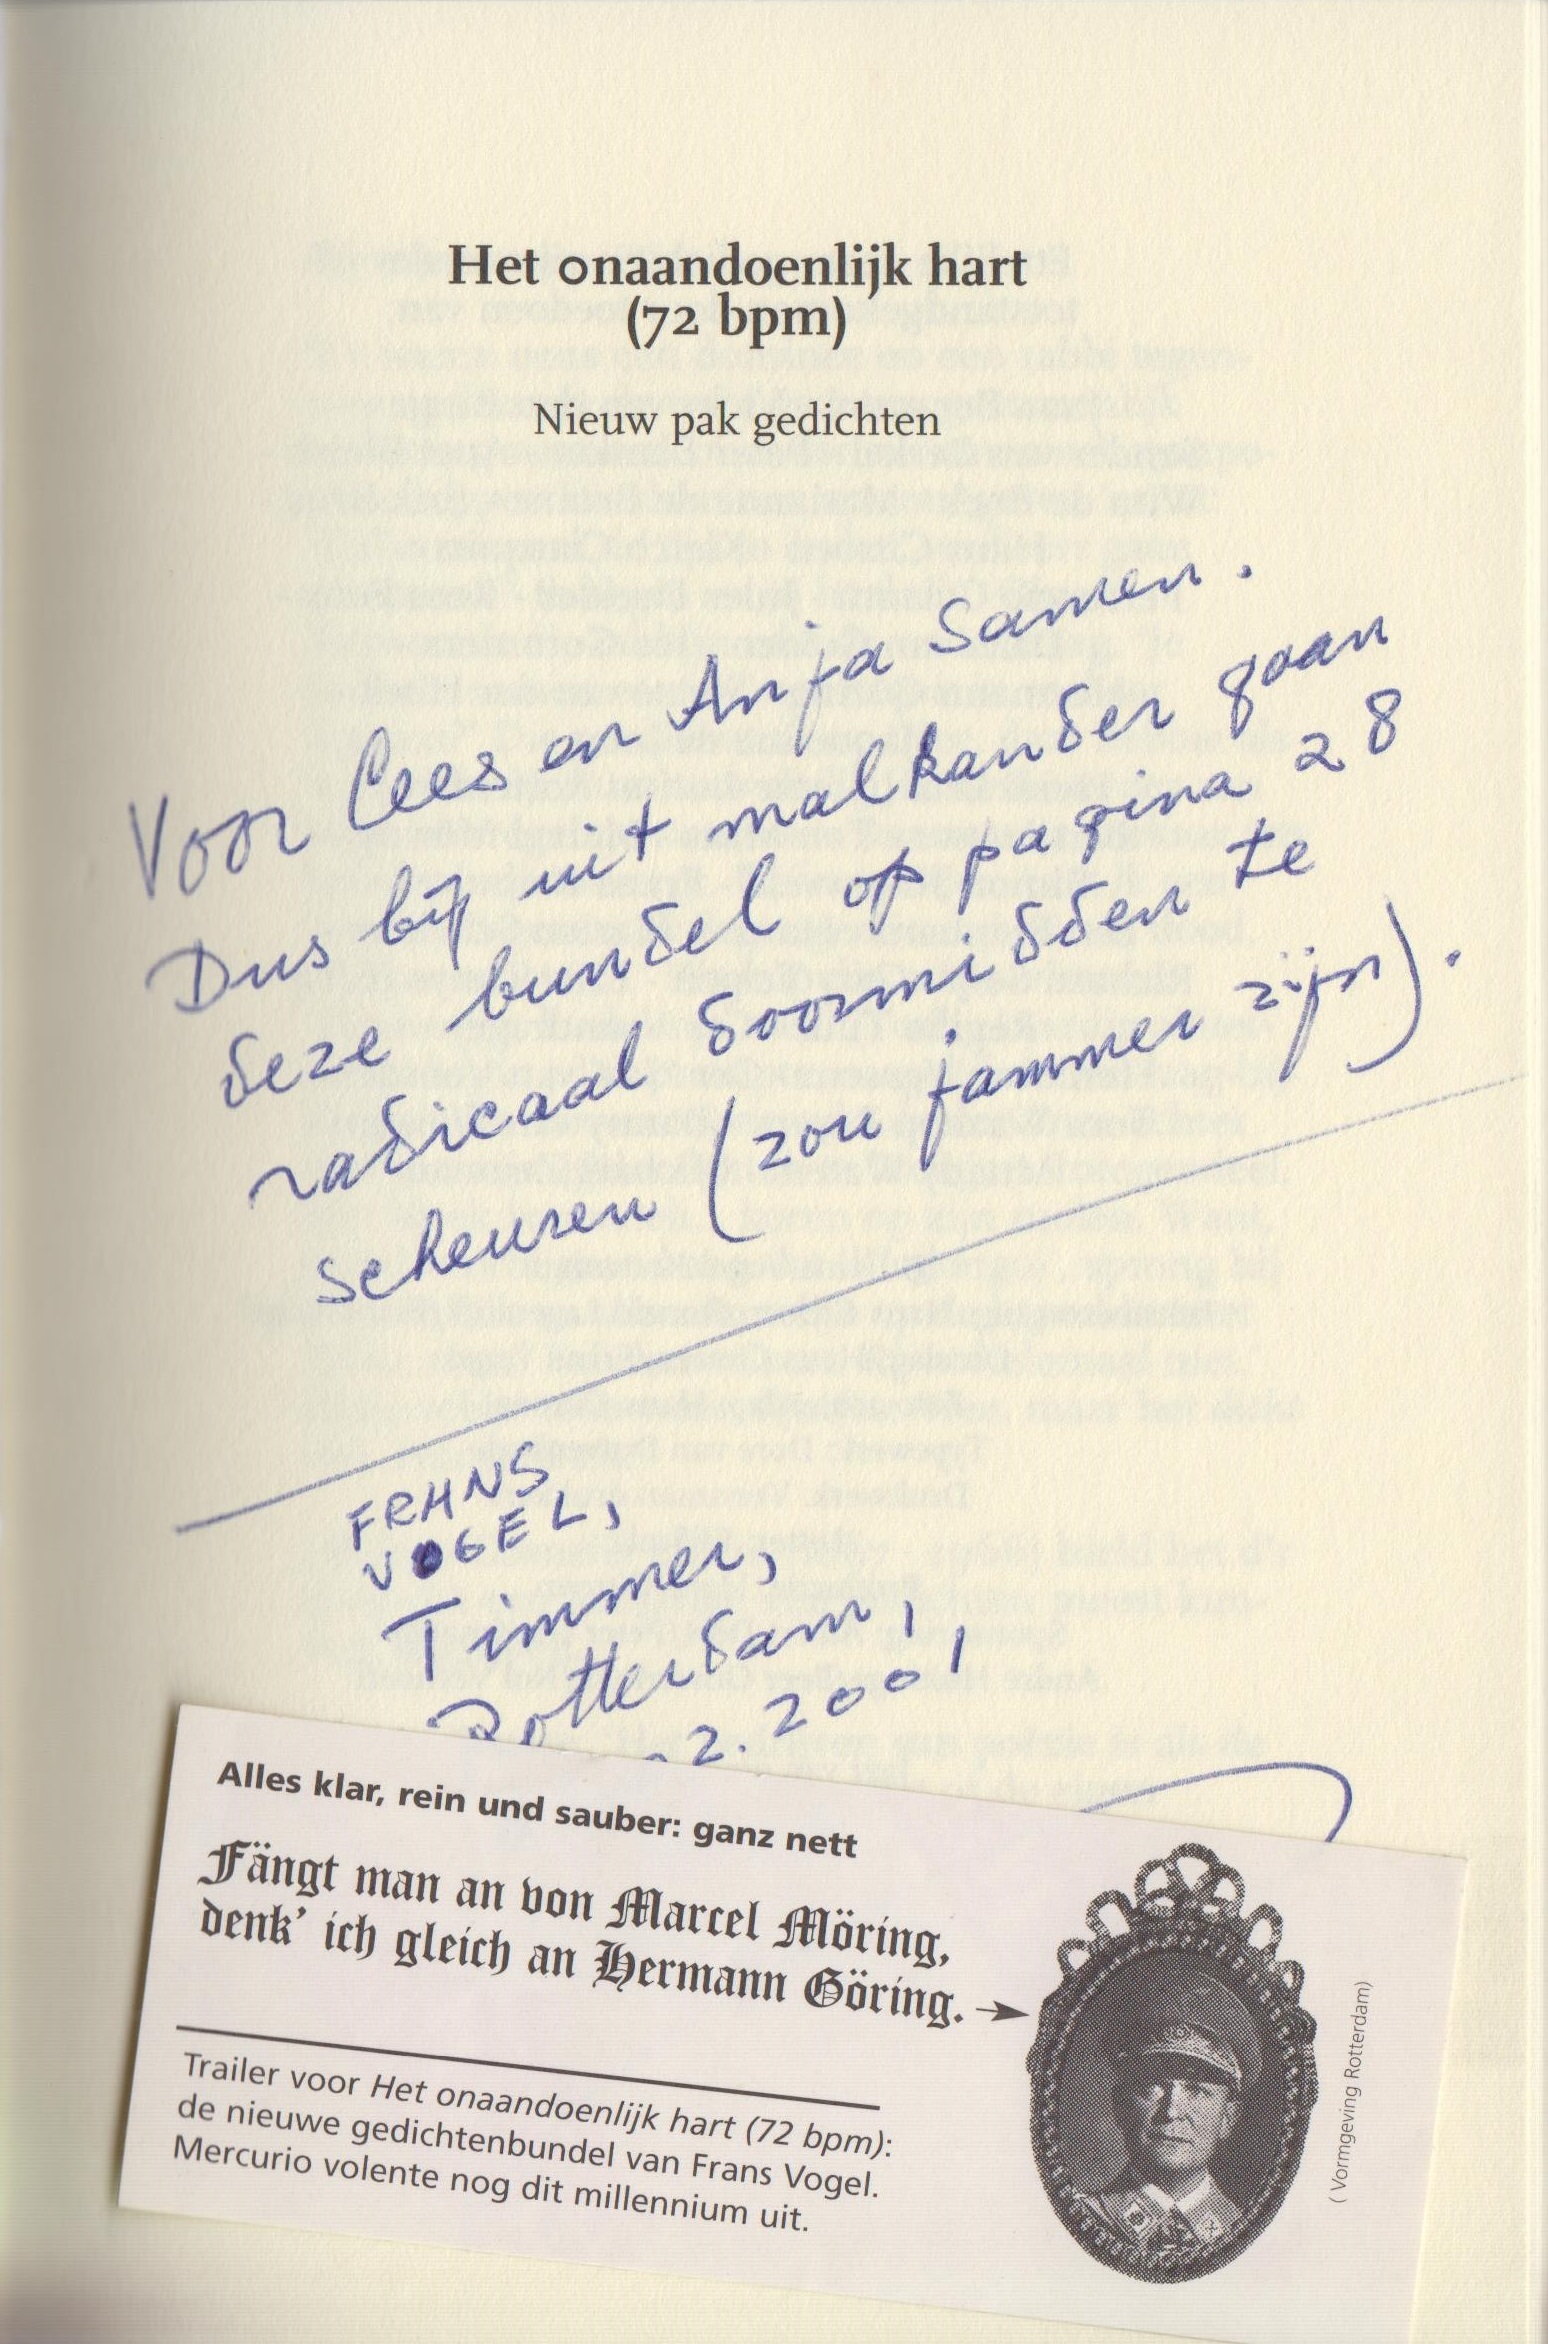 Het onaandoenlijk hart
(72 bpm)
Nieuw pak gedichten
Voor Cees en Anja samen.
Dus bij uit malkander gaan
deze bundel op pagina 28
radicaal doormidden te
scheuren (zou jammer zijn).
FRANS
VOGEL,
Timmer,
Rotterdam,
2.2001
Alles klar, rein und sauber: ganz nett
Fängt man an von Marcel Möring,
denk' ich gleich an Hermann Göring.
Trailer voor Het onaandoenlijk hart (72 bpm):
de nieuwe gedichtenbundel van Frans Vogel.
Mercurio volente nog dit millennium uit.
( Vormgeving Rotterdam)